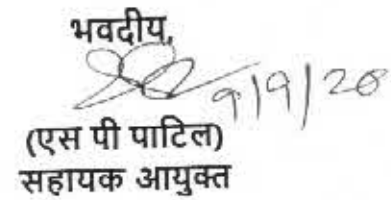 भवदीय,
9/9/20
(एस पी पाटिल)
सहायक आयुक्त